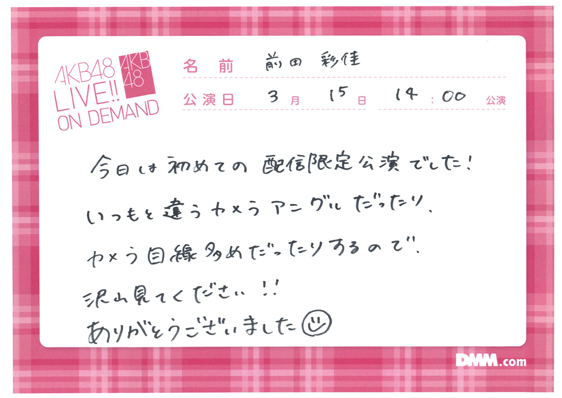 AKB48
LIVE!!
ON DEMAND
AKB
48
名前 前田 彩佳
公演日 3月 15日 14:00 公演
今日は初めての配信限定公演でした!
いつもと違うカメラアングルだったり、
カメラ目線多めだったりするので、
沢山見てください!!
ありがとうございました
DMM.com